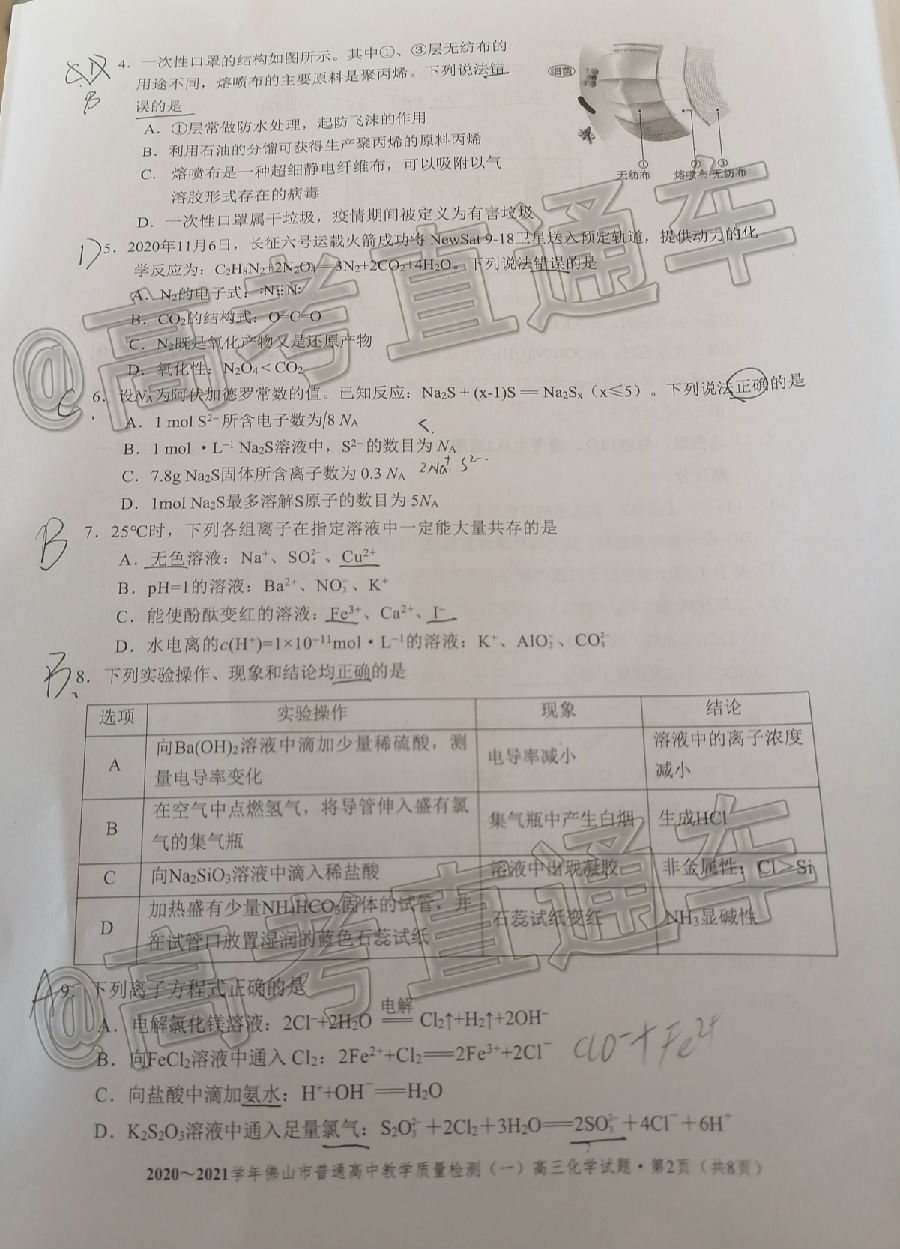 4．一次性口罩的结构如图所示。其中①、③层无纺布的
用途不同，熔喷布的主要原料是聚丙烯。下列说法错
误的是
B
A．①层常做防水处理，起防飞沫的作用
B．利用石油的分馏可获得生产聚丙烯的原料丙烯
C．熔喷布是一种超细静电纤维布，可以吸附以气
溶胶形式存在的病毒
D．一次性口罩属干垃圾，疫情期间被定义为有害垃圾
① ② ③
无纺布 熔喷布 无纺布
D 5．2020年11月6日，长征六号运载火箭成功将 NewSat 9-18卫星送入预定轨道，提供动力的化
学反应为：C₂H₈N₂+2N₂O₄═3N₂+2CO₂+4H₂O。下列说法错误的是
A．N₂的电子式：:N⋮⋮N:
B．CO₂的结构式：O=C=O
C．N₂既是氧化产物又是还原产物
D．氧化性：N₂O₄＜CO₂
C 6．设Nₐ为阿伏加德罗常数的值。已知反应：Na₂S + (x-1)S ═ Na₂Sₓ（x≤5）。下列说法正确的是
A．1 mol S²⁻所含电子数为8 Nₐ
B．1 mol・L⁻¹ Na₂S溶液中，S²⁻的数目为 Nₐ
C．7.8g Na₂S固体所含离子数为 0.3 Nₐ 2Na⁺ S²⁻
D．1mol Na₂S最多溶解S原子的数目为 5Nₐ
B 7．25℃时，下列各组离子在指定溶液中一定能大量共存的是
A．无色溶液：Na⁺、SO₄²⁻、Cu²⁺
B．pH=1的溶液：Ba²⁺、NO₃⁻、K⁺
C．能使酚酞变红的溶液：Fe³⁺、Ca²⁺、I⁻
D．水电离的c(H⁺)=1×10⁻¹¹mol・L⁻¹的溶液：K⁺、AlO₂⁻、CO₃²⁻
B 8．下列实验操作、现象和结论均正确的是
选项 实验操作 现象 结论
A 向Ba(OH)₂溶液中滴加少量稀硫酸，测
量电导率变化 电导率减小 溶液中的离子浓度
减小
B 在空气中点燃氢气，将导管伸入盛有氯
气的集气瓶 集气瓶中产生白烟 生成HCl
C 向Na₂SiO₃溶液中滴入稀盐酸 溶液中出现凝胶 非金属性：Cl＞Si
D 加热盛有少量NH₄HCO₃固体的试管，并
在试管口放置湿润的蓝色石蕊试纸 石蕊试纸变红 NH₃显碱性
A 9．下列离子方程式正确的是
A．电解氯化镁溶液：2Cl⁻+2H₂O 电解═ Cl₂↑+H₂↑+2OH⁻
B．向FeCl₂溶液中通入 Cl₂：2Fe²⁺+Cl₂═2Fe³⁺+2Cl⁻ ClO⁻+Fe²⁺
C．向盐酸中滴加氨水：H⁺+OH⁻═H₂O
D．K₂S₂O₃溶液中通入足量氯气：S₂O₃²⁻＋2Cl₂＋3H₂O═2SO₃²⁻＋4Cl⁻＋6H⁺
2020～2021学年佛山市普通高中教学质量检测（一）高三化学试题・第2页（共8页）
@高考直通车
@高考直通车